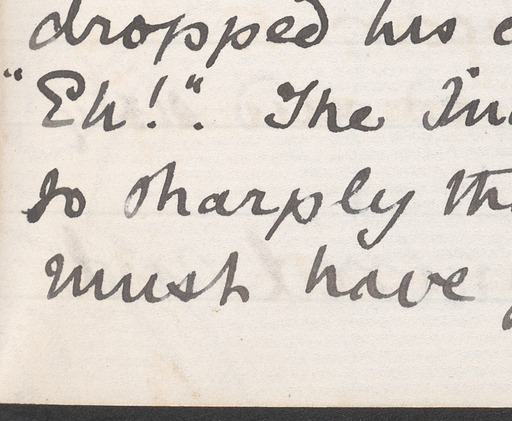 dropped his
"Eh!". The
so sharply
must have